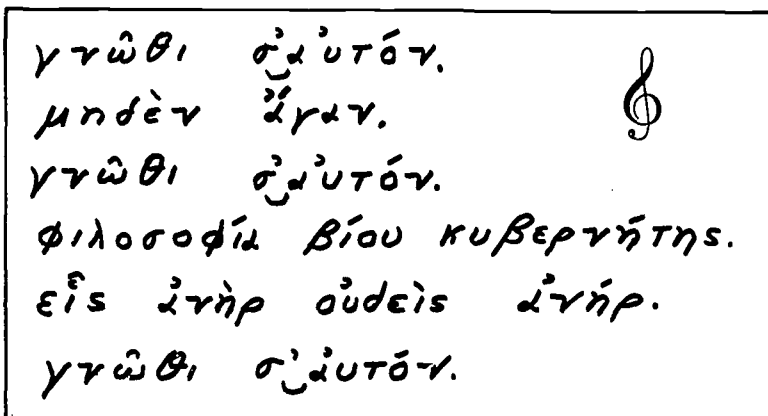 γνῶθι σ’ αὐτόν.
μηδὲν ἄγαν.
γνῶθι σ’ αὐτόν.
φιλοσοφία βίου κυβερνήτης.
εἷς ἀνὴρ οὐδεὶς ἀνήρ.
γνῶθι σ’ αὐτόν.